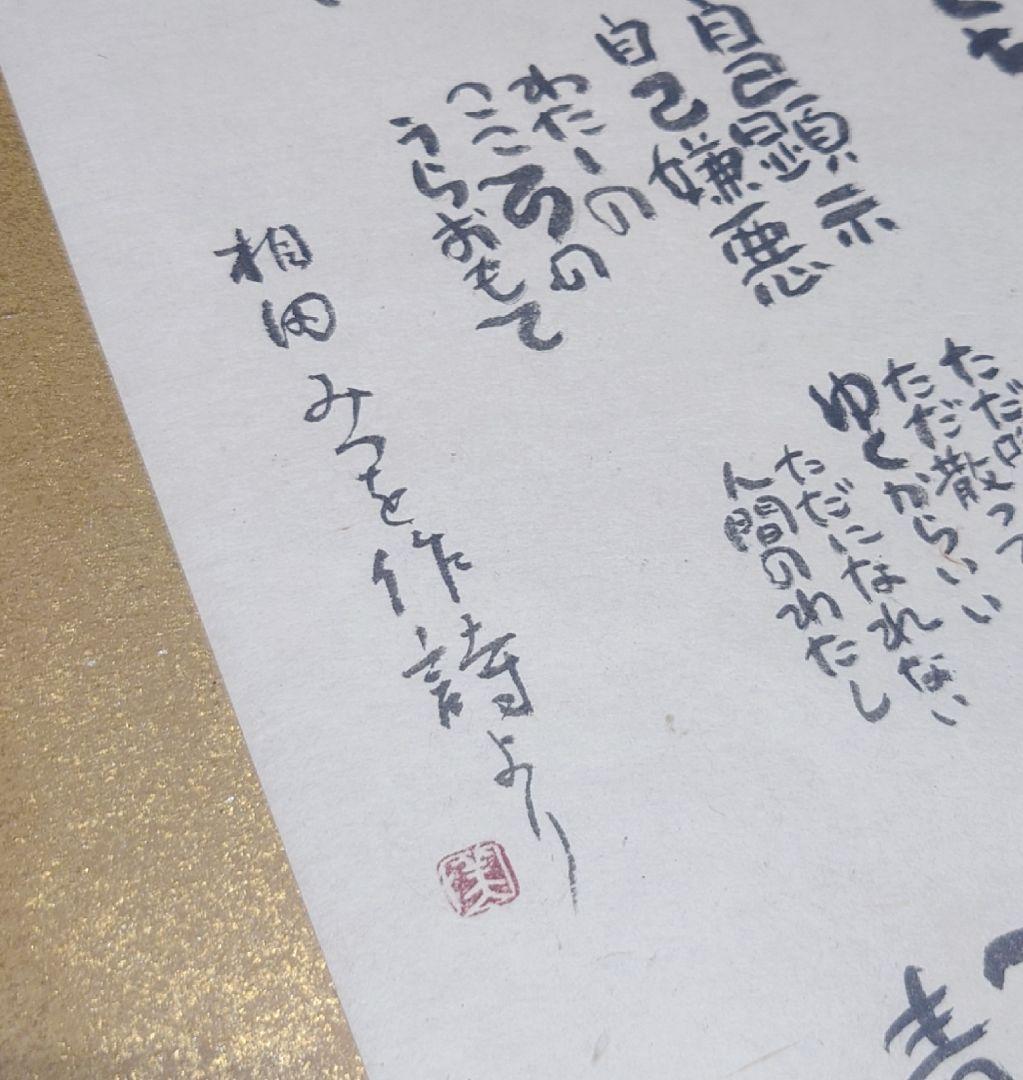 自己顕示
自己嫌悪
わたしの
こころの
うらおもて
ただ
ただ散って
ゆくからいい
ただになれない
人間のわたし
相田みつを作詩より